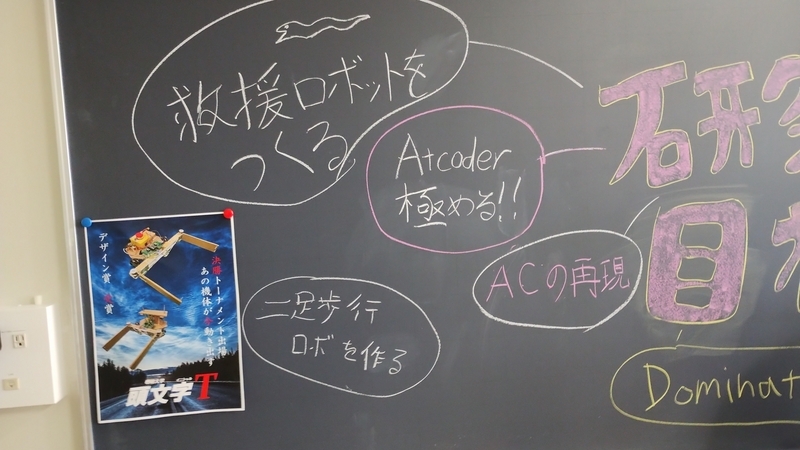 救援ロボットを
つくる
Atcoder
極める!!
研究
目
ACの再現
二足歩行
ロボを作る
Dominat
決勝トーナメント出場
あの機体が
動き出す
デザイン賞
賞
頭文字T